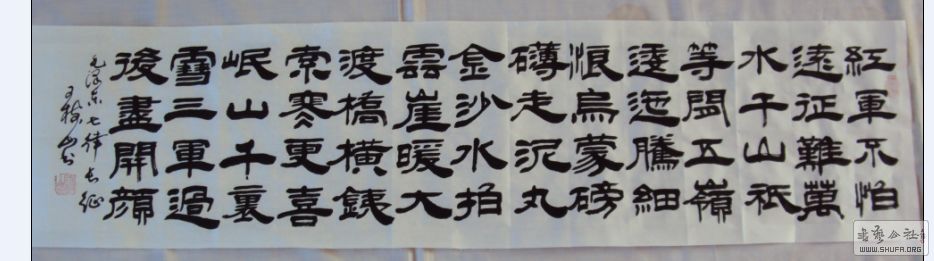 紅軍不怕
遠征難萬
水千山祇
等閒五嶺
逶迤騰細
浪烏蒙磅
礴走泥丸
金沙水拍
雲崖暖大
渡橋橫銕
索寒更喜
岷山千裏
雪三軍過
後盡開顏
毛泽东七律长征
WWW.SHUFA.ORG